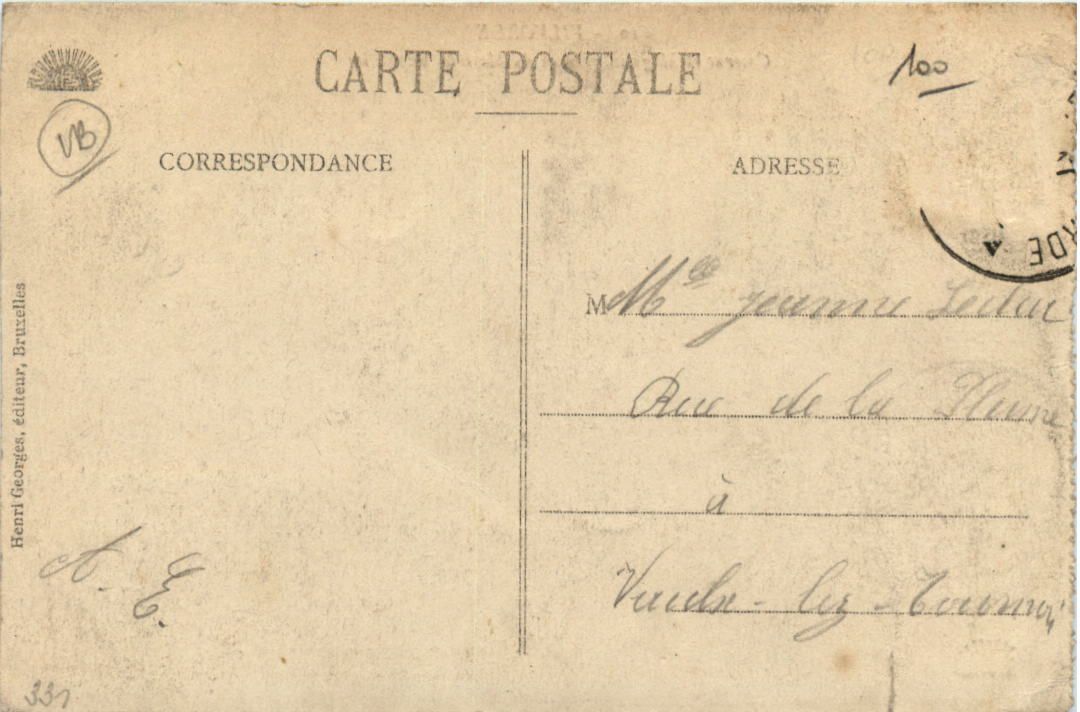 CARTE POSTALE
100
VB
CORRESPONDANCE
ADRESSE
RDE
M Mlle Jeanne Leclerc
Rue de la
à
Vaulx-lez-Tournai
A. E.
Henri Georges, éditeur, Bruxelles
331